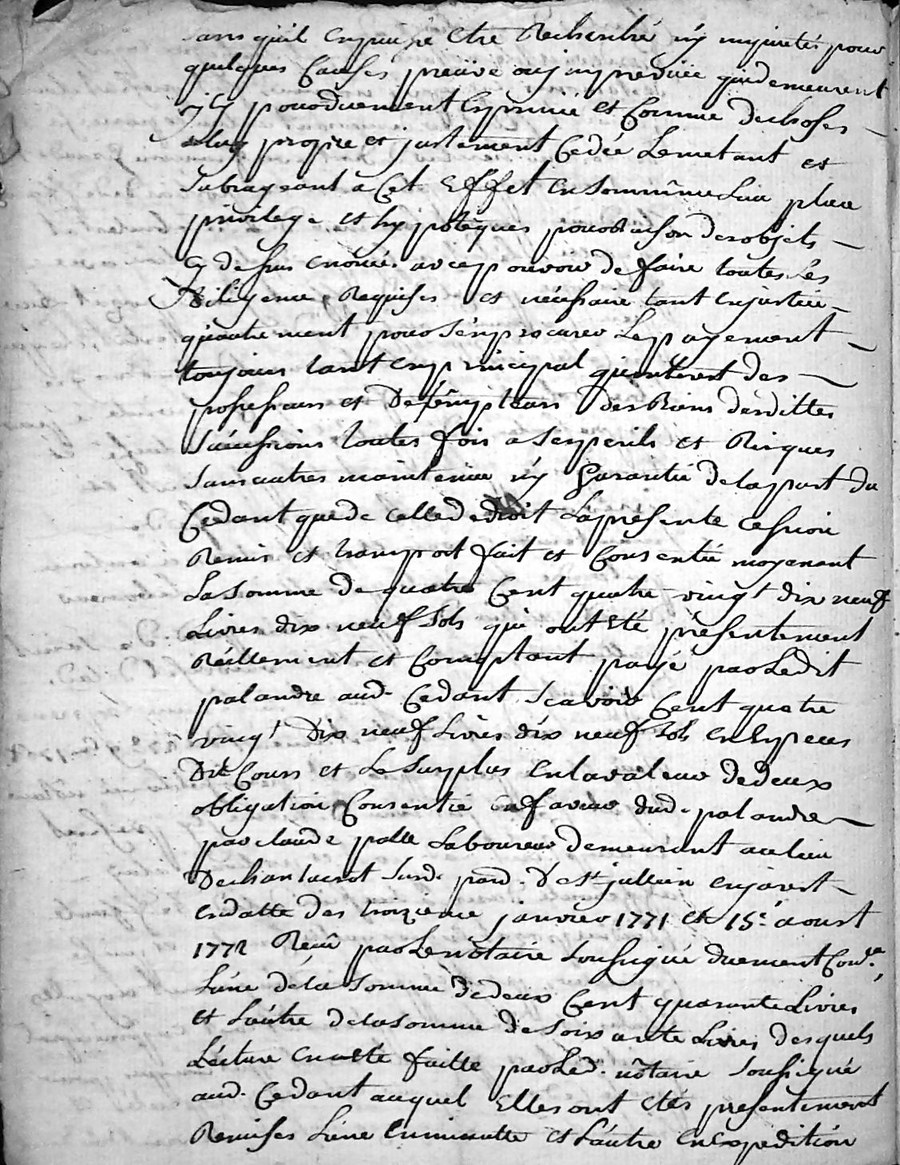 sans quil en puisse etre Recherché ny inquietés pour
quelques Causes preuüe ou jmpreuüe qui demeurent
jcy pour duement Exprimée et Comme de choses
a luy propre et justement Cédée Le mettant et
subrogeant a Cet Effet en son nom lieu place
privilege et hypoteques pour Raison des objets
Cy dessus enoncés avec pouvoir de faire toutes Les
Diligence Requises et nécessaire tant en justice
quautrement pour s'en procurer Le payement
toujours tant en principal quinterest des
possesseurs et Detempteurs des Biens desdittes
Successions toutes fois a ses perils et Risques
sans autres maintenüe ny Garantie de la part du
Cedant que de celle de droit La présente cession
Remis et transport fait et Consentie moyenant
La somme de quatre Cent quatre vingt dix neuf
Livres dix neuf sols qui ont Eté présentement
Réellement et Comptant payé par Ledit
palandre aud. Cedant Scavoir Cent quatre
vingt Dix neuf Livres dix neuf sols en Especes
Du Cours et Le surplus en la valeur de deux
obligation Consentie en faveur dud. palandre
par claude palle Laboureur demeurant au lieu
De chantacrot surd. parr. De St. jullien en jarest
en datte des troizieme janvier 1771 et 15e. aoust
1772 Reçu par Le notaire soussigné duement Con.lé
L'une de la somme De deux Cent quarante Livres
et L'autre de la somme de soixante Livres desquels
Lecture en a eté faitte par Led. nôtaire soussigné
aud. Cedant auquel Elles ont etés présentement
Remises L'une en minutte et L'autre en Expédition